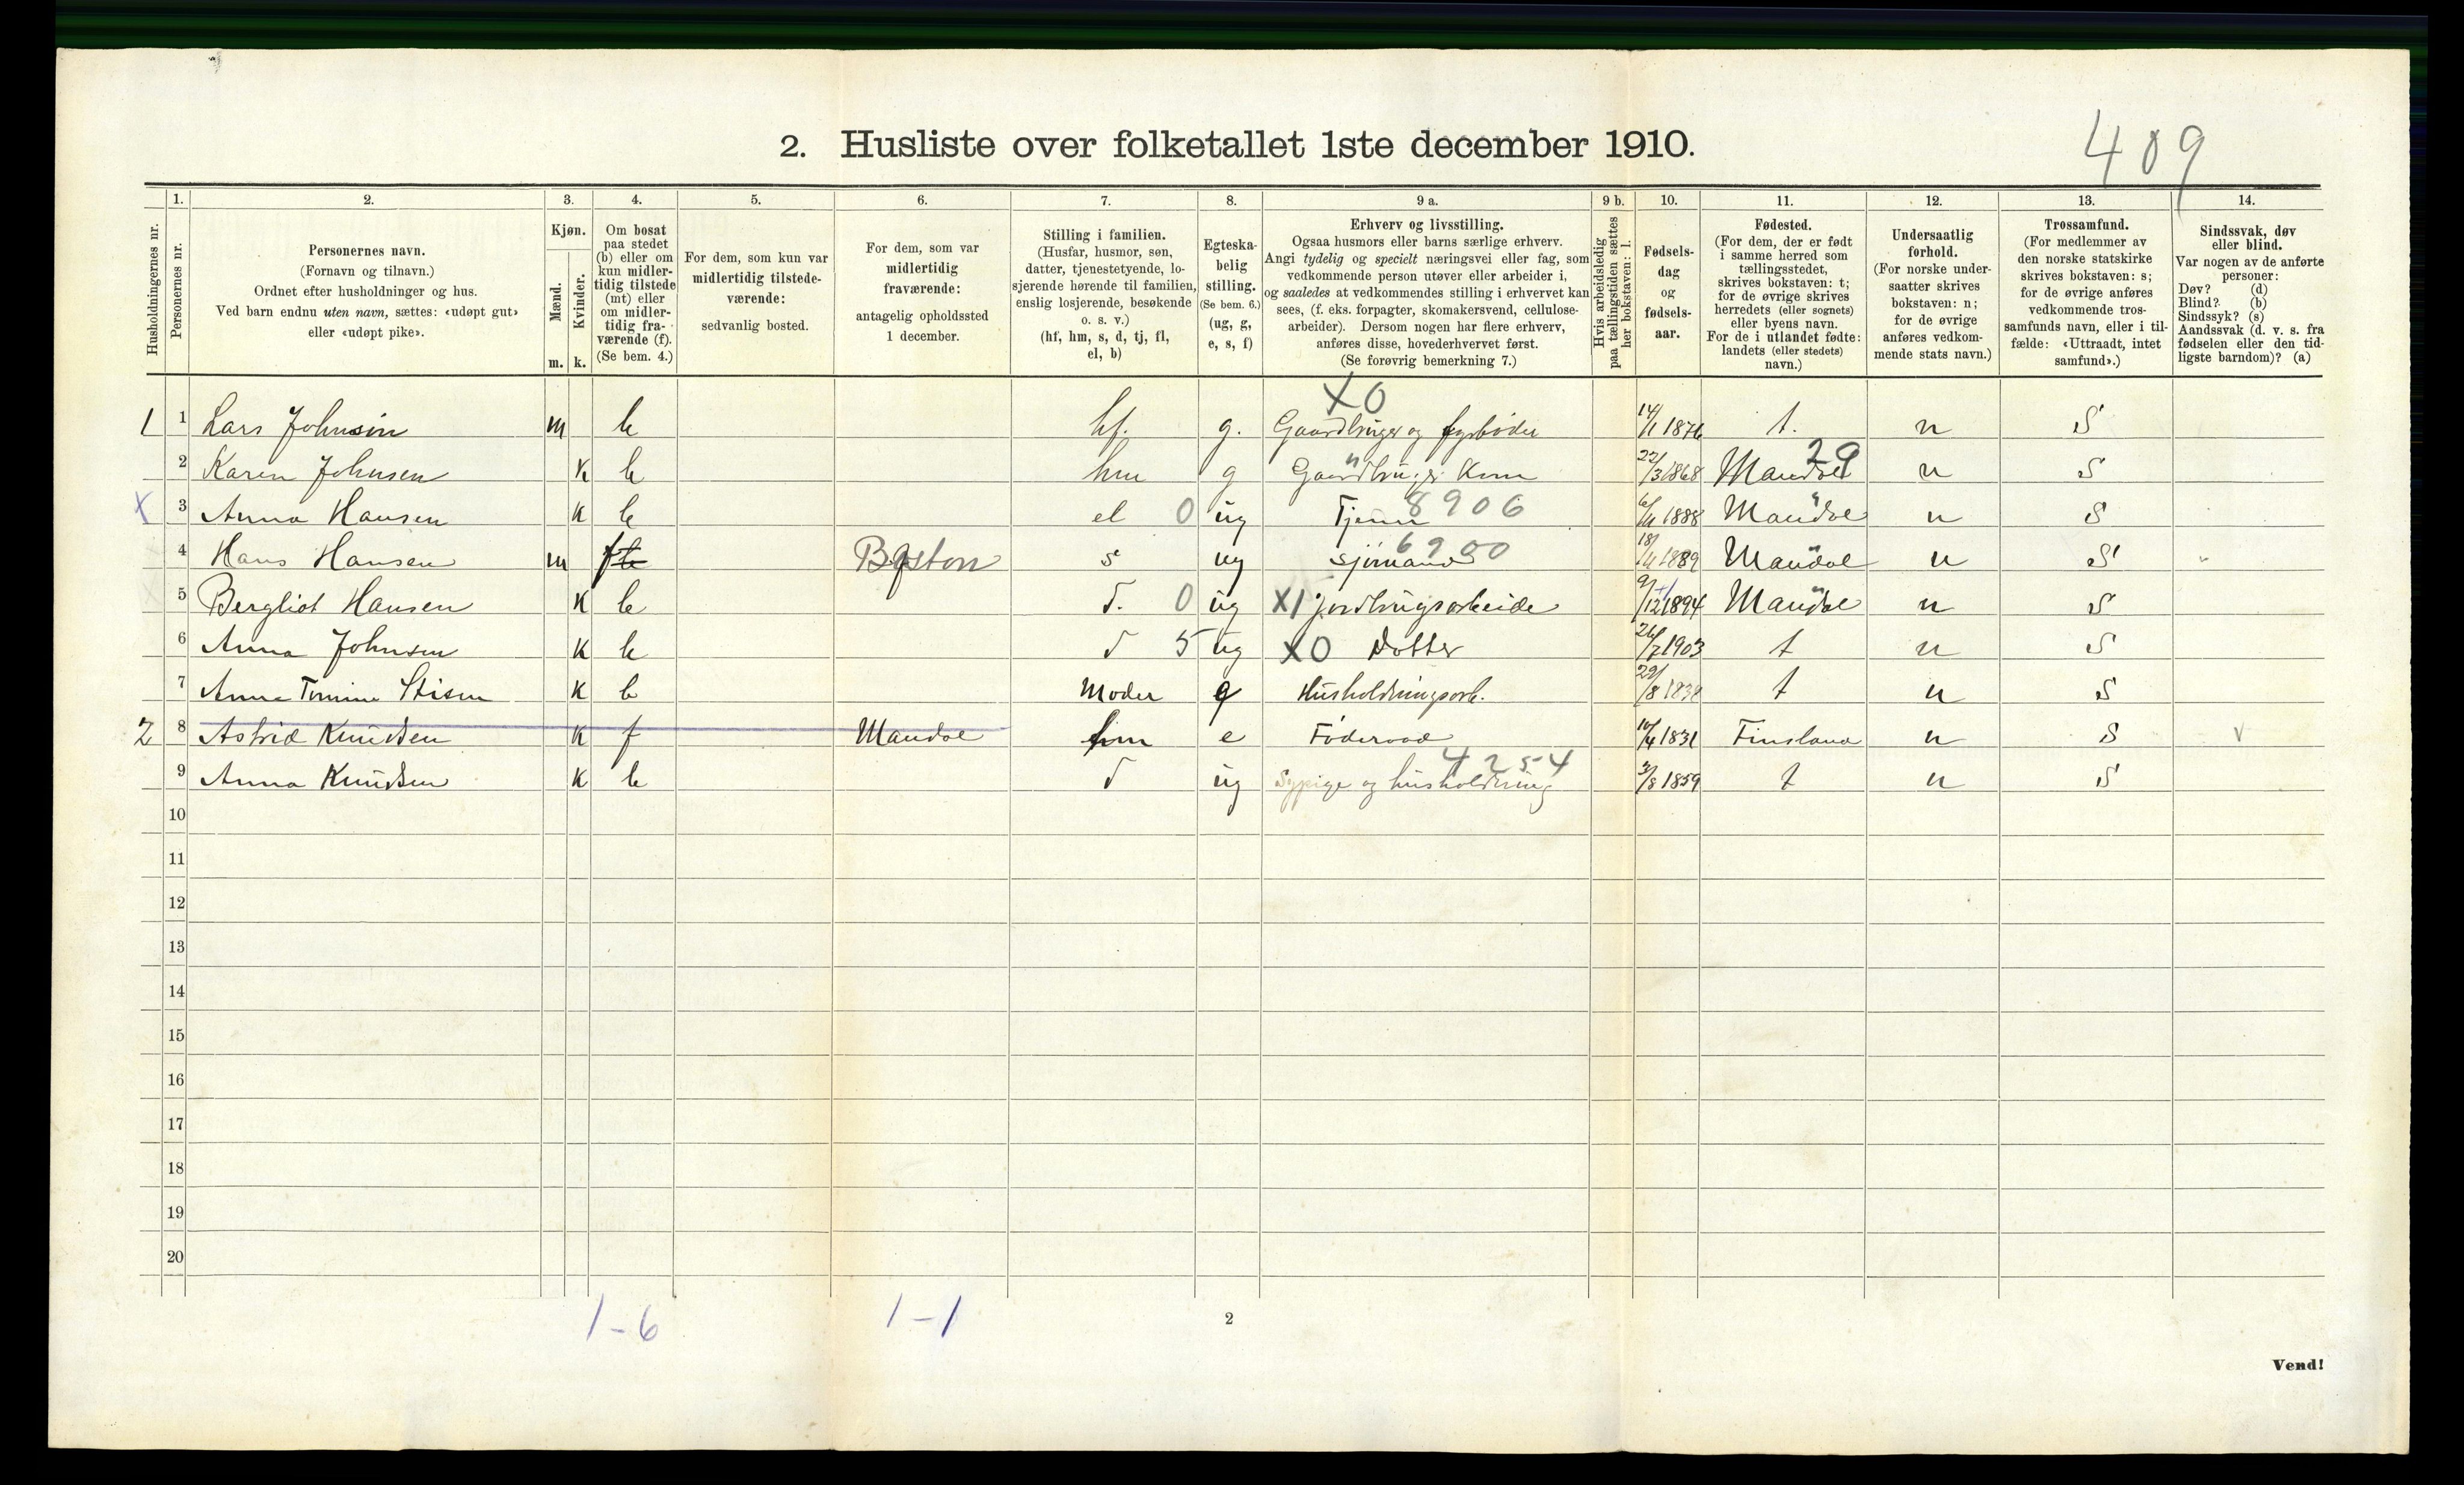 409
2. Husliste over folketallet 1ste december 1910.
Husholdningernes nr.
1. Personernes nr.
2. Personernes navn.
(Fornavn og tilnavn.)
Ordnet efter husholdninger og hus.
Ved barn endnu uten navn, sættes: «udøpt gut»
eller «udøpt pike».
3. Kjøn.
Mænd. m.
Kvinder. k.
4. Om bosat
paa stedet
(b) eller om
kun midler-
tidig tilstede
(mt) eller
om midler-
tidig fra-
værende (f).
(Se bem. 4.)
5. For dem, som kun var
midlertidig tilstede-
værende:
sedvanlig bosted.
6. For dem, som var
midlertidig
fraværende:
antagelig opholdssted
1 december.
7. Stilling i familien.
(Husfar, husmor, søn,
datter, tjenestetyende, lo-
sjerende hørende til familien,
enslig losjerende, besøkende
o. s. v.)
(hf, hm, s, d, tj, fl,
el, b)
8. Egteska-
belig
stilling.
(Se bem. 6.)
(ug, g,
e, s, f)
9 a. Erhverv og livsstilling.
Ogsaa husmors eller barns særlige erhverv.
Angi tydelig og specielt næringsvei eller fag, som
vedkommende person utøver eller arbeider i,
og saaledes at vedkommendes stilling i erhvervet kan
sees, (f. eks. forpagter, skomakersvend, cellulose-
arbeider). Dersom nogen har flere erhverv,
anføres disse, hovederhvervet først.
(Se forøvrig bemerkning 7.)
9 b. Hvis arbeidsledig
paa tællingstiden sættes
her bokstaven: l.
10. Fødsels-
dag
og
fødsels-
aar.
11. Fødested.
(For dem, der er født
i samme herred som
tællingsstedet,
skrives bokstaven: t;
for de øvrige skrives
herredets (eller sognets)
eller byens navn.
For de i utlandet fødte:
landets (eller stedets)
navn.)
12. Undersaatlig
forhold.
(For norske under-
saatter skrives
bokstaven: n;
for de øvrige
anføres vedkom-
mende stats navn.)
13. Trossamfund.
(For medlemmer av
den norske statskirke
skrives bokstaven: s;
for de øvrige anføres
vedkommende tros-
samfunds navn, eller i til-
fælde: «Uttraadt, intet
samfund».)
14. Sindssvak, døv
eller blind.
Var nogen av de anførte
personer:
Døv? (d)
Blind? (b)
Sindssyk? (s)
Aandssvak (d. v. s. fra
fødselen eller den tid-
ligste barndom)? (a)
X0
1 1 Lars Johnsen m b hf. g. Gaardbruger og fyrbøder 14/1 1876 t. n S
2 Karen Johnsen K b hm g Gaardbruger Kone 22/3 1868 Mandal 29 n S
X 3 Anna Hansen K b el 0 ug Tjener 8906 6/11 1888 Mandal n S
4 Hans Hansen m f Boston s ug Sjømand 6900 18/11 1889 Mandal n S
5 Bergliot Hansen K b d. 0 ug X1 jordbrugsarbeide 9/12 1894 Mandal n S
6 Anna Johnsen K b d 5 ug X0 Dotter 26/7 1903 t n S
7 Anna Tomine K b Moder g Husholdningsarb. 29/8 t n S
2 8 Astrid Knudsen K f Mandal hm e Føderaad 10/4 1831 Finsland n S v
9 Anna Knudsen K b d ug Sypige og husholdning 4254 3/8 1859 t n S
10
11
12
13
14
15
16
17
18
19
20
1-6 1-1
2
Vend!